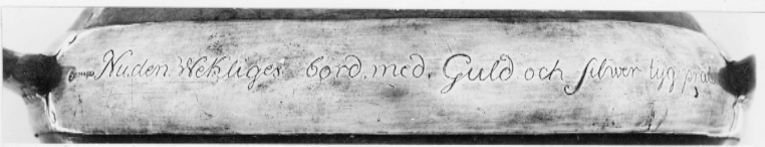 Nu.den Wekliges bord.med. Guld och silwer tyg pra